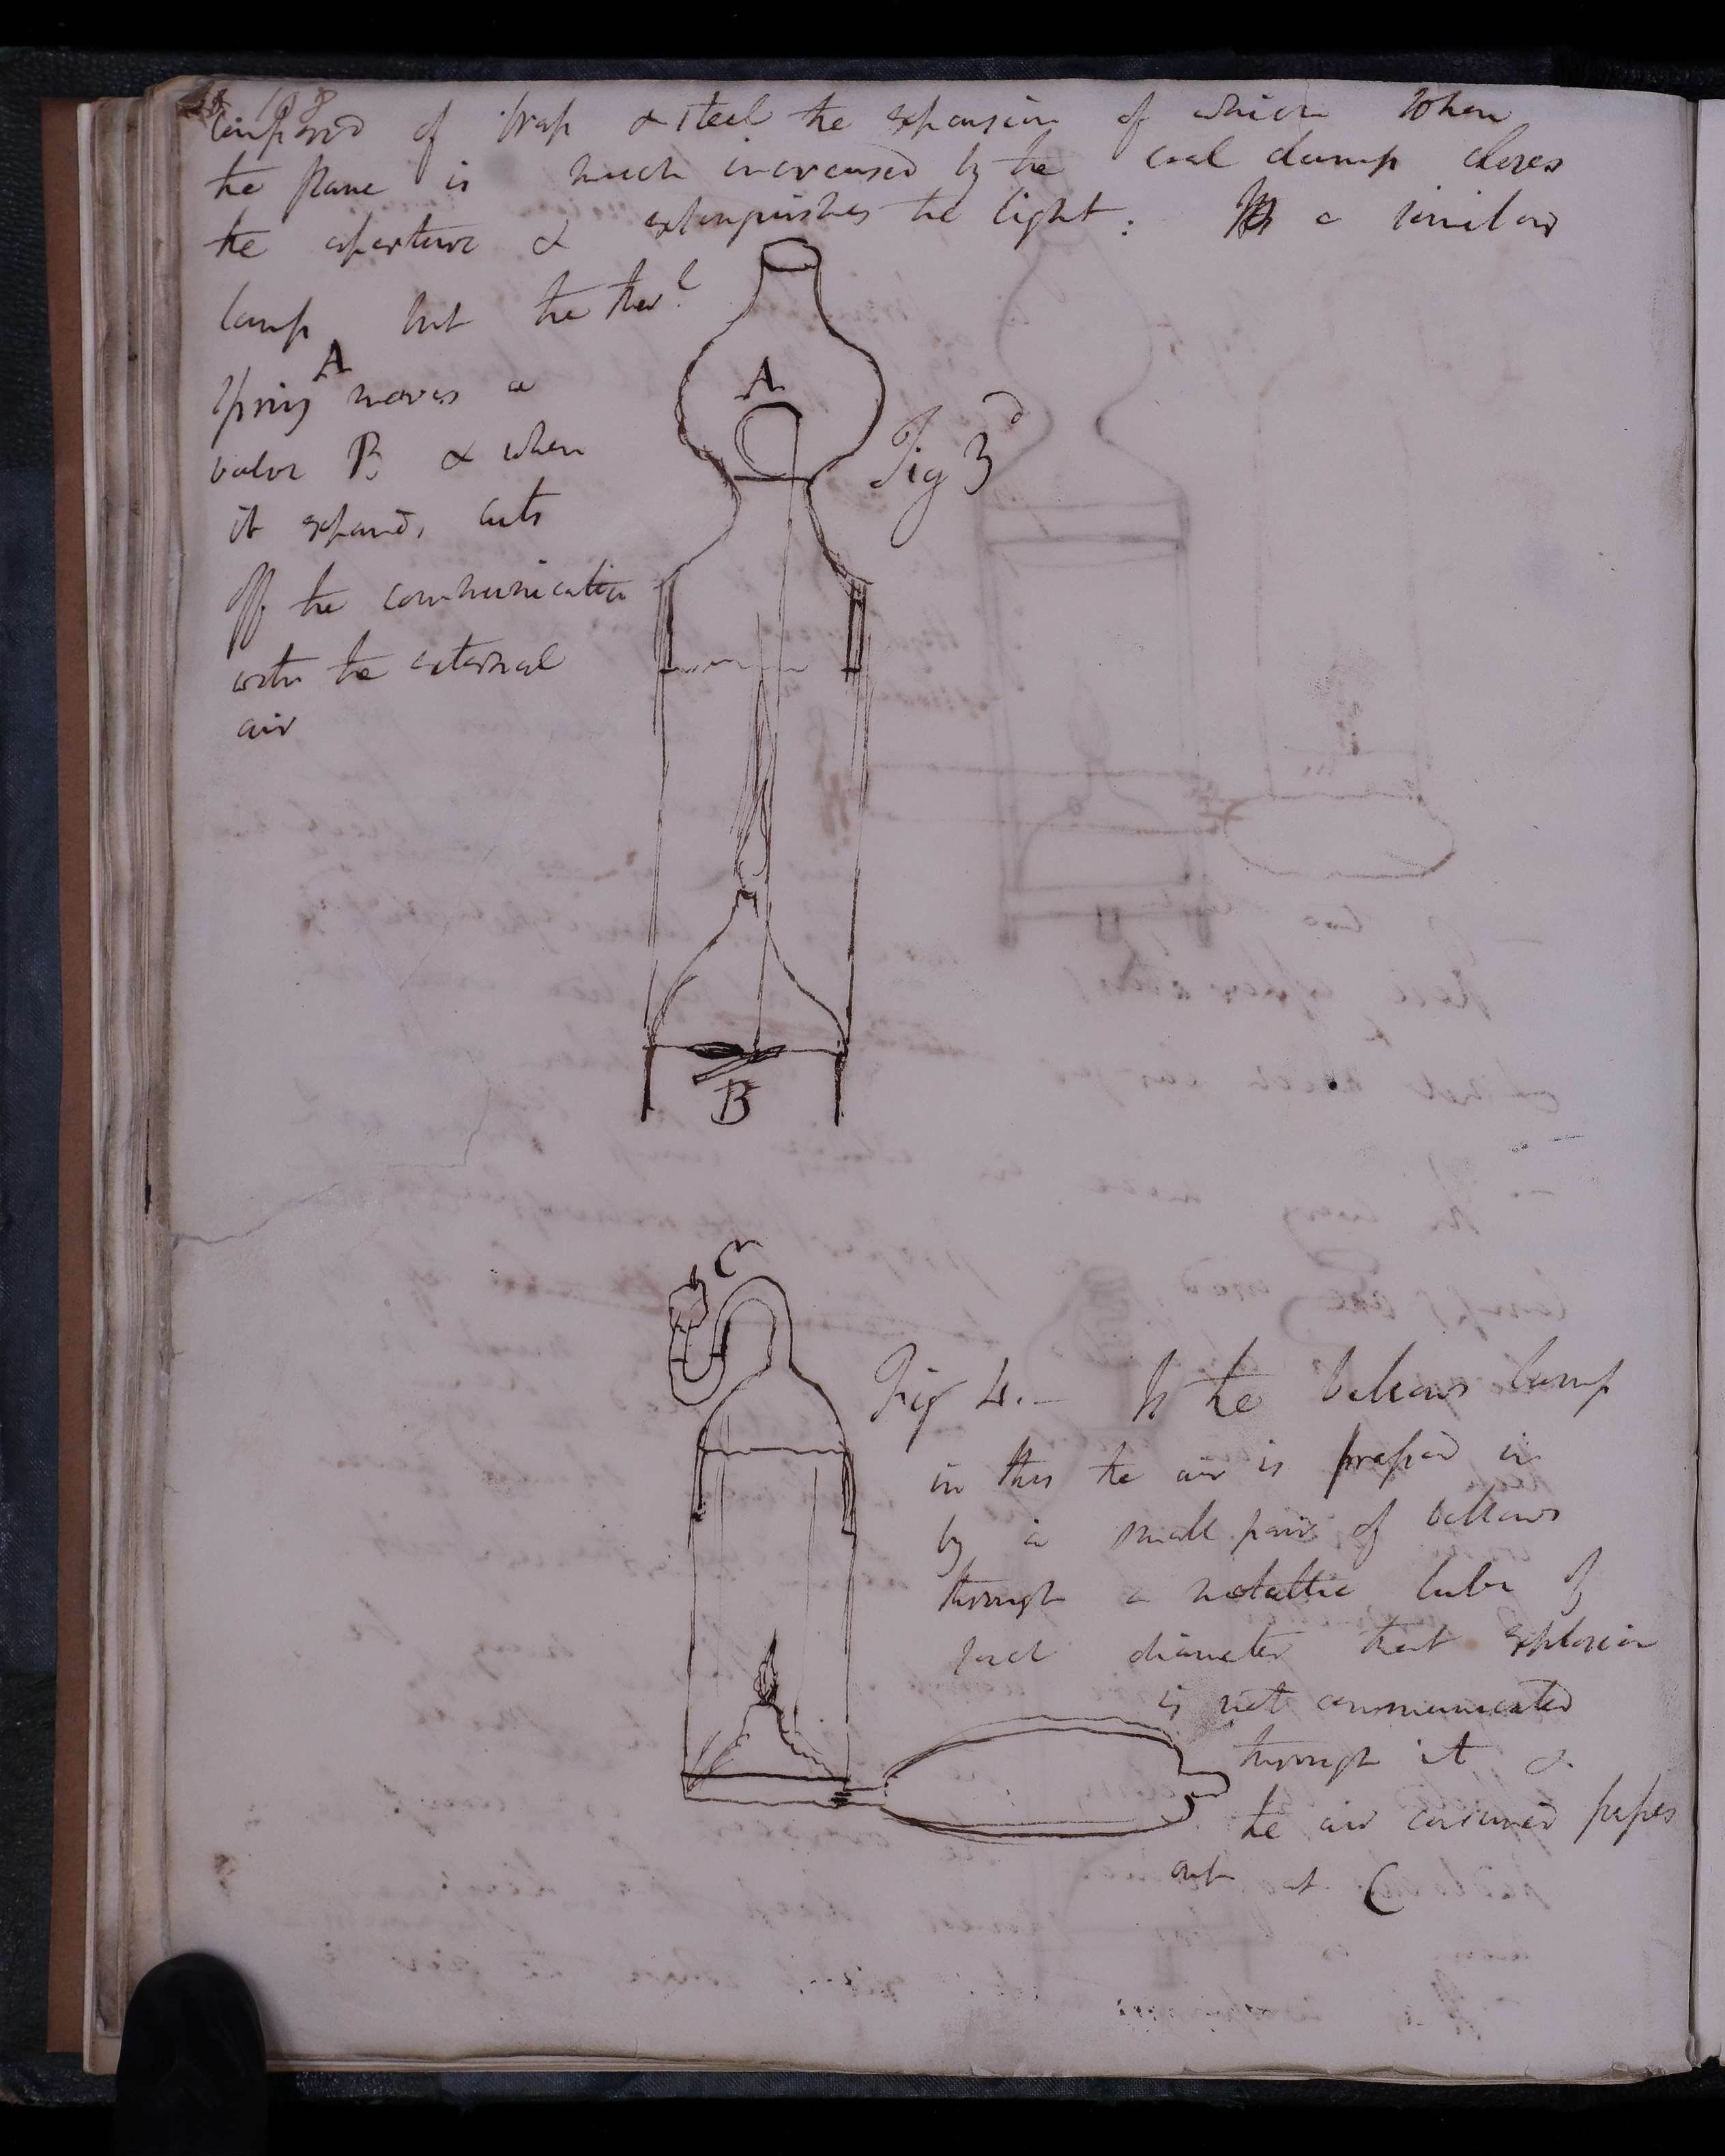 composed of brass & steel the expansion of which when
the flame is much increased by the coal damp closes
the aperture & extinguishes the light: a similar
lamp but the ther.l
A
spring moves a
valve B & when
it expands, cuts
off the communication
with the external
air
A
Fig 3d
B
C
Fig 4.— Is the bellows lamp
in this the air is passed in
by a small pair of bellows
through a metallic tube of
such diameter that explosion
is not communicated
through it &
the air consumed passes
out at C